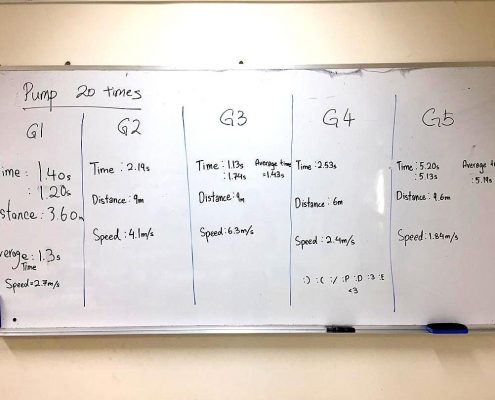 Pump 20 times
G1
Time: 1.40s
: 1.20s
Distance: 3.60m
Average: 1.3s
Time
Speed=2.7m/s
G2
Time: 2.19s
Distance: 9m
Speed: 4.1m/s
G3
Time: 1.13s
: 1.74s
Average time
=1.43s
Distance: 9m
Speed: 6.3m/s
G4
Time: 2.53s
Distance: 6m
Speed: 2.4m/s
:) :( :/ :P :D :3 :E
<3
G5
Time: 5.20s
: 5.13s
Average time
: 5.19s
Distance: 9.6m
Speed: 1.84m/s